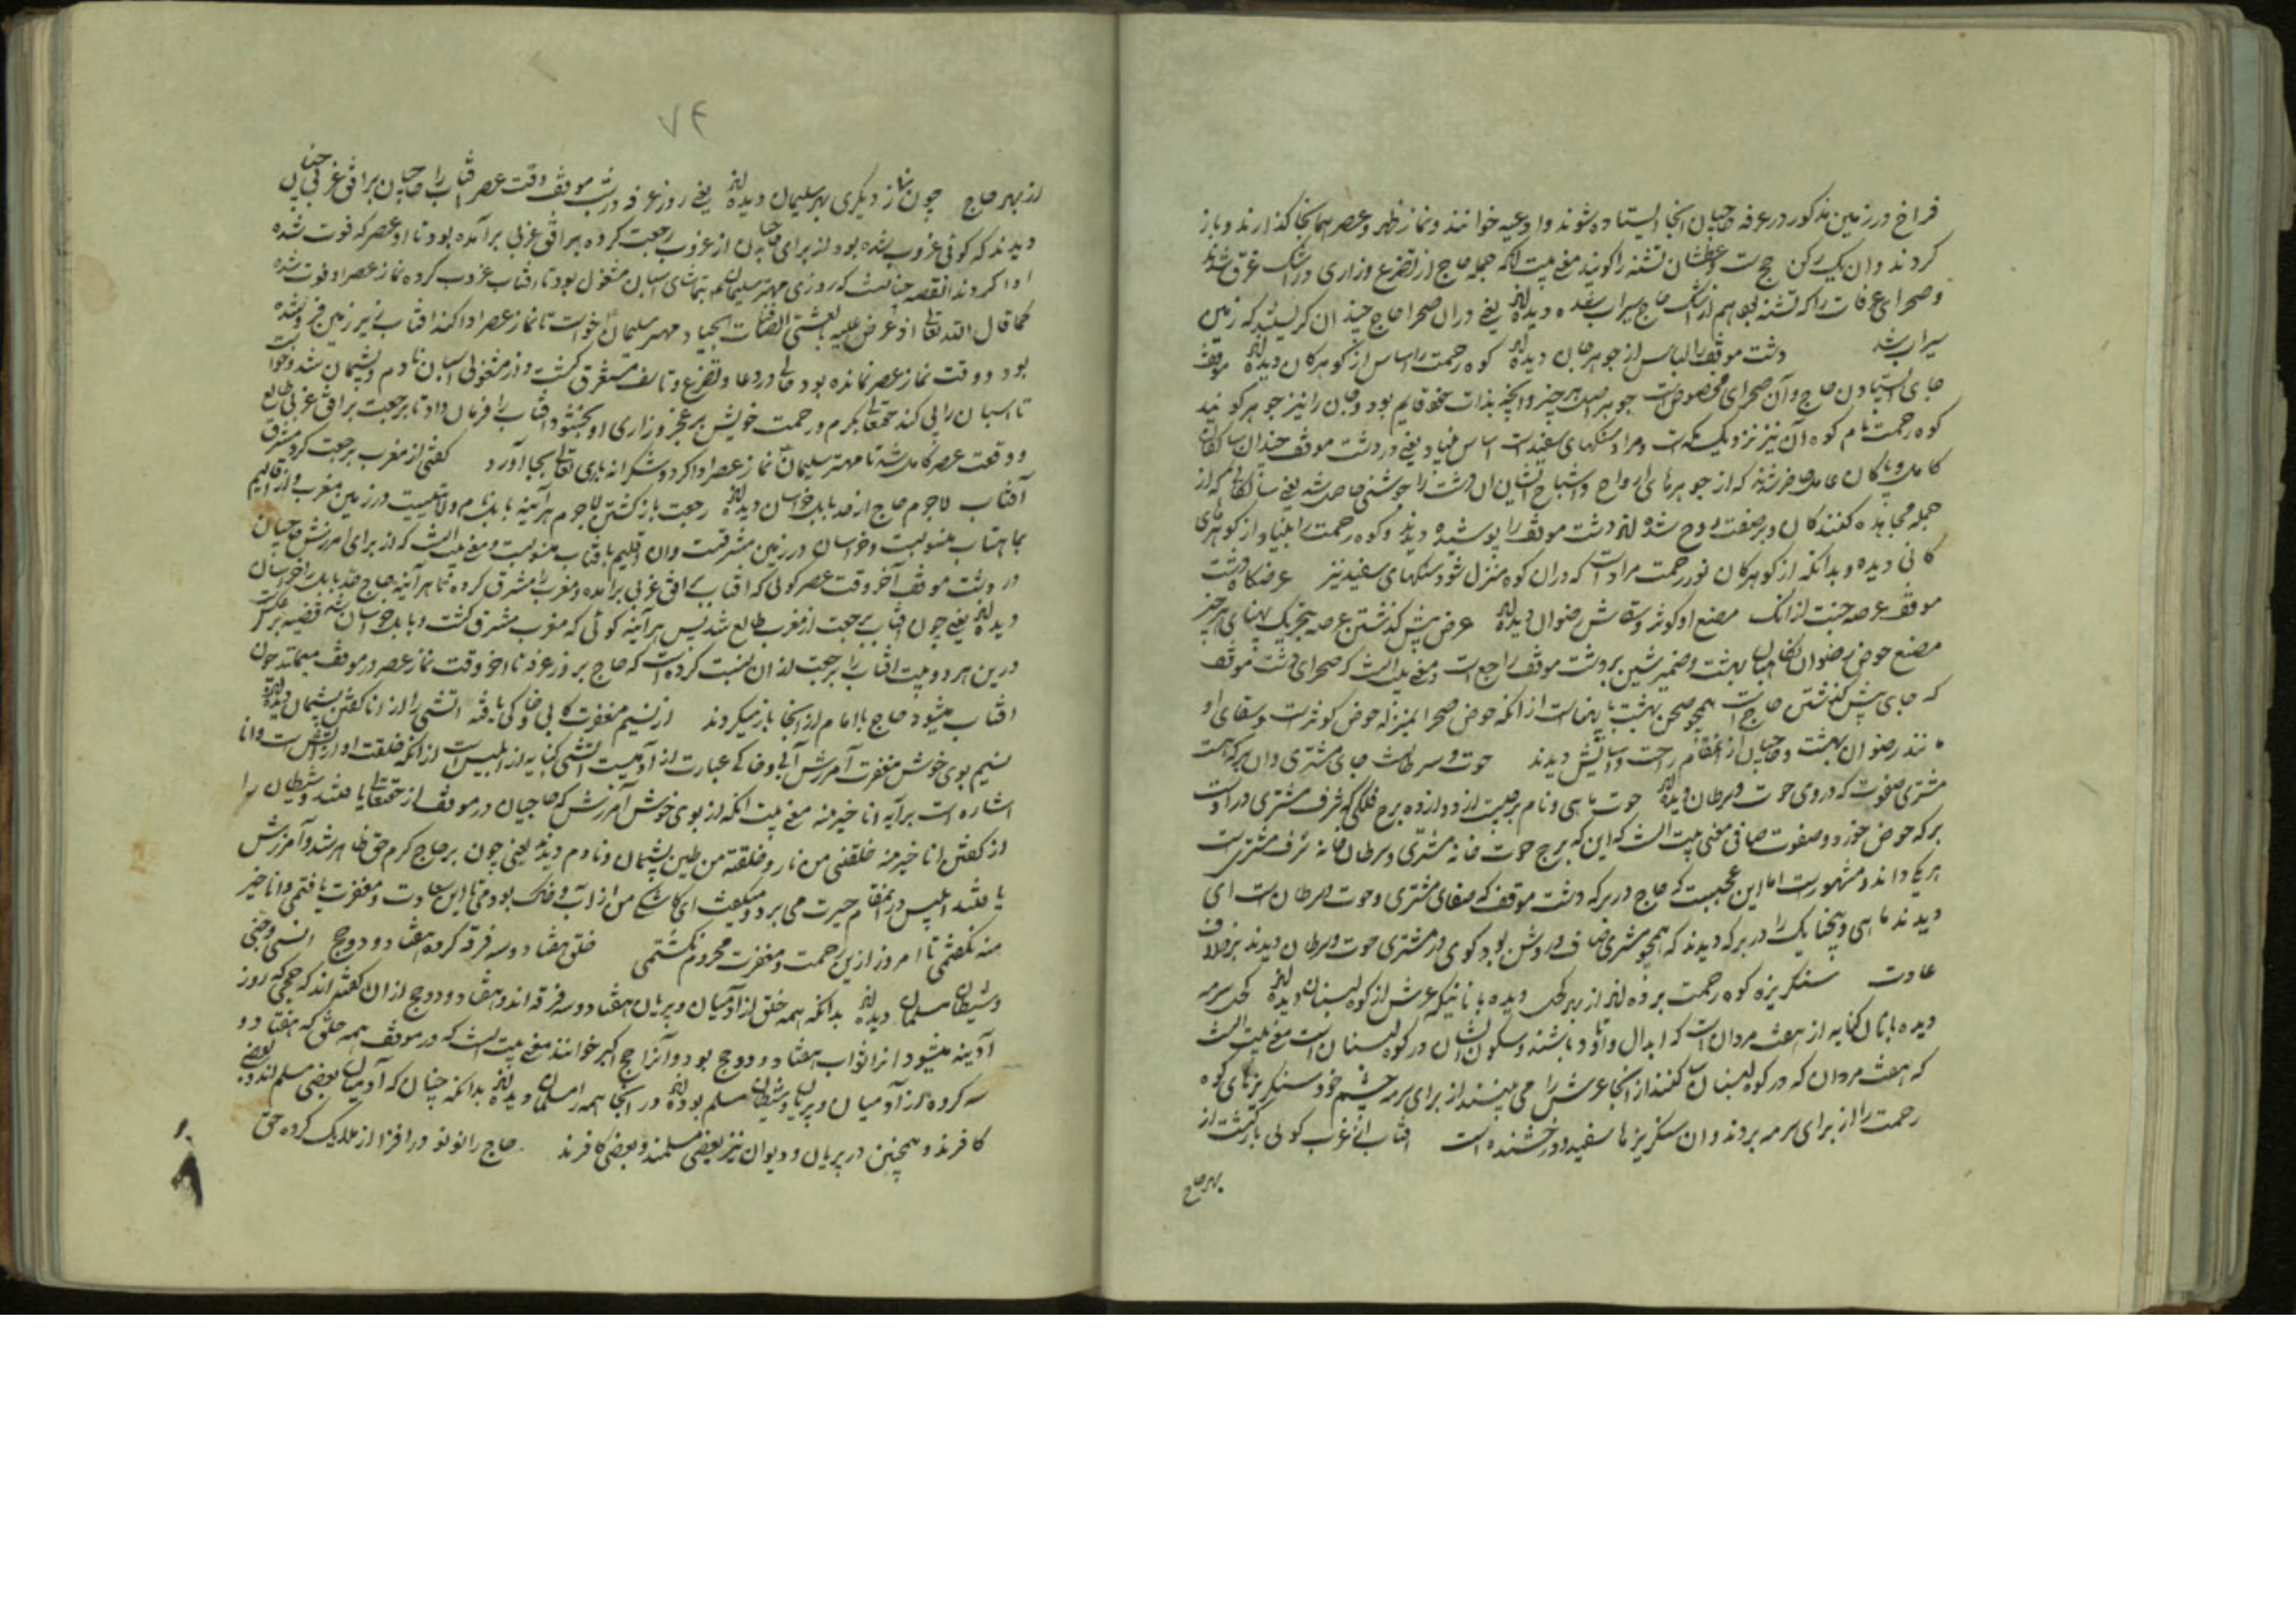 فراخ در زمین مذکور در عرفه حاجیان انجا ایستاده شوند وادعیه خوانند ونماز ظهر وعصر همانجا گذارند وباز
کردند وان یک رکن حج ست وعطشان تشنه را کویند معنی بیت انکه جمله حاج از تضرع وزاری در اشک غرق شدند
وصحرای عرفات را که تشنه بود هم از اشک حاج سیراب شده دیده اند یعنی دران صحرا حاج چندان کریستند که زمین
سیراب شد دشت موقف را لباس از جوهر جان دیده اند کوه رحمت را اساس از کوهر کان دیده اند موقف
جای ایستادن حاج وآن صحرای مخصوص است جوهر اصل هر چیز وانچه بذات خود قایم بود وجان را نیز جوهر کویند
کوه رحمت نام کوه آن نیز نزدیک مکه است ومراد سنکهای سفید است اساس بنیاد یعنی در دشت موقف چندان سالکان
کامل وپاکان عامل حاضر شدند که از جوهرهای ارواح واشباح ایشان ان دشت را خوشنی حاصل شد یعنی سالکانی که از
جمله مجاهده کنندکان وبر صفت روح شده اند دشت موقف را پوشیده دیدند وکوه رحمت را بنیاد از کوهرهای
کانی دیده وبدانکه از کوهر کان نور رحمت مراد است که دران کوه منزل شود وسنکهای سفید نیز عرضکاه دشت
موقف عرصه جنت از انک مصنع او کوثر وسقاش رضوان دیده اند عرض پیش گذشتن عرصه پهنای هر چیز
مصنع حوض رضوان بهشت وضمیر شین بر دشت موقف راجع است ومعنی بیت انست که صحرای دشت موقف
که جای پیش گذشتن حاج است همچو صحن بهشت با پهناست از انکه حوض صحرا بمنزله حوض کوثر است وسقای او
مانند رضوان بهشت وحاجیان از انمقام راحت واسایش دیدند حوت وسرطانست جای مشتری وان برکه هست
مشتری صفوت که در وی حوت وسرطان دیده اند حوت ماهی ونام برجیست از دوازده برج فلکی که شرف مشتری در اوست
برکه حوض خورد وصفوت صافی معنی بیت انست که این که برج حوت خانه مشتری وسرطان خانه شرف مشتری است
هر یک داند ومشهور است اما این عجبست که حاج در برکه دشت موقف که صفای مشتری وحوت وسرطان است ای
دیدند ماهی وپنجپایک را در برکه دیدند که همچو مشتری صاف وروشن بود کوی در مشتری حوت وسرطان دیدند بر خلاف
عادت سنکریزه کوه رحمت برده اند از بهر کحل دیده بانانیکه عرش از کوه لبنان دیده اند کحل سرمه
دیده بانان کنایه از هفت مردان است که ابدال واوتاد باشند وسکون ایشان در کوه لبنان است معنی بیت انست
که هفت مردان که در کوه لبنان ساکنند از انجا عرش را می بینند از برای سرمه چشم خود سنکریزهای کوه
رحمت را از برای سرمه بردند وان سنکریزها سفید ودرخشنده است افتاب از غرب کوئی باز کشت از
بهر حاج
۷۴
از بهر حاج چون نماز دیگری بهر سلیمان دیده اند یعنی روز عرفه در دشت موقف وقت عصر افتاب را حاجیان بر افق غربی چنان
دیدند که کوئی غروب شده بود از برای حاجیان از غروب رجعت کرده بر افق غربی برآمده بود تا او عصر که فوت شده
ادا کردند القصه چنانست که روزی مهتر سلیمان بتماشای اسپان مشغول بود تا افتاب غروب کرده نماز عصر او فوت شده
کما قال الله تعالی اذ عرض علیه بالعشی الصافنات الجیاد مهتر سلیمان خواست تا نماز عصر ادا کند افتاب زیر زمین فرو شده
بود ووقت نماز عصر نمانده بود حالی در دعا وتضرع وتاسف مستغرق کشت واز مشغولی اسپان نادم وپشیمان شد وخواست
تا اسپان را پی کند حقتعالی بکرم ورحمت خویش بر عجز وزاری او بخشود وافتاب را فرمان داد تا برجعت بر افق غربی طالع
ووقت عصر کامل شد تا مهتر سلیمان نماز عصر ادا کرد وشکرانه باری تعالی بجا آورد کفتی از مغرب برجعت کرد مشرق
آفتاب لاجرم حاج از حد بابل خراسان دیده اند رجعت باز کشتن لاجرم هرآینه بابل نام ولایتیست در زمین مغرب واز اقالیم
بماهتاب منسوبست وخراسان در زمین مشرقست وان اقلیم بافتاب منسوبست ومعنی بیت انست که از برای امرزش حاجیان
در دشت موقف آخر وقت عصر کوئی که افتاب بافق غربی برآمده ومغرب را مشرق کرده تا هرآینه حاج حد بابل را خراسان
دیده اند یعنی چون افتاب برجعت از مغرب طالع شد پس هرآینه کوئی که مغرب مشرق کشت وبابل خراسان شد قضیه برعکس
درین هر دو بیت افتاب را برجعت از ان نسبت کرده است که حاج بروز عرفه تا اخر وقت نماز عصر در موقف میمانند چون
افتاب میشود حاج با امام از انجا باز میکردند از نسیم مغفرت کابی وخاکی یافته اتشی را از انا کفتن پشیمان دیده اند
نسیم بوی خوش مغفرت آمرزش آبی وخاکی عبارت از آدمیست اتشی کنایه از ابلیس است از انکه خلقت او از اتش است وانا
اشاره است برآیه انا خیر منه معنی بیت انکه از بوی خوش آمرزش که حاجیان در موقف از حقتعالی یافتند وشیطان را
از کفتن انا خیر منه خلقتنی من نار وخلقته من طین پشیمان ونادم دیدند یعنی چون بر حاج کرم حق ظاهر شد وآمرزش
یافتند ابلیس در انمقام حیرت می برد ومیکفت ای کاشکی من از آب وخاک بودمی تا این سعادت ومغفرت یافتمی وانا خیر
منه نکفتمی تا امروز ازین رحمت ومغفرت محروم نکشتمی خلق هفتاد وسه فرقه کرده هفتاد ودو حج انسی وجنی
وشیطان مسلمان دیده اند بدانکه همه خلق از آدمیان وپریان هفتاد وسه فرقه اند وهفتاد ودو حج از ان کفته اند که حجی که روز
آدینه میشود انرا ثواب هفتاد ودو حج بود وآنرا حج اکبر خوانند معنی بیت انست که در موقف همه خلق که هفتاد و
سه کروه از آدمیان وپریان وشیطان مسلم بوده اند در انجا همه را مسلمان دیده اند بدانکه چنان که آدمیان بعضی مسلم اند وبعضی
کافرند وهمچنین در پریان ودیوان نیز بعضی مسلمند وبعضی کافرند حاج را نو نو در افزا از ملایک کرده حق